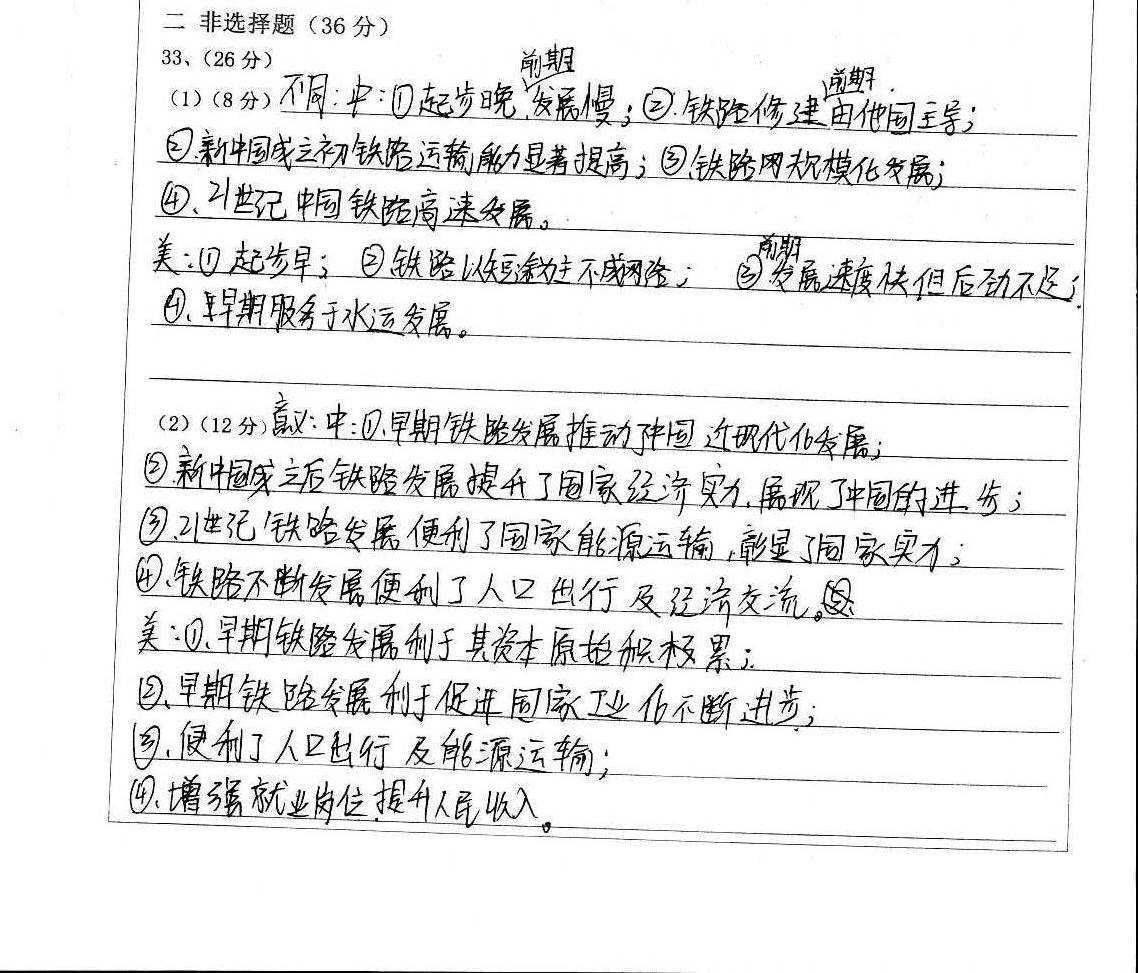 二 非选择题（36 分）
33、（26 分）
（1）（8 分）不同：中：①起步晚，前期发展慢；②.铁路修建前期由他国主导；
②.新中国成立初铁路运输能力显著提高；③.铁路网规模化发展；
④、21世纪中国铁路高速发展。
美：①起步早；②铁路以短途为主不成网络；③前期发展速度快但后劲不足；
④、早期服务于水运发展。
（2）（12 分）意义：中：①.早期铁路发展推动中国近现代化发展；
②.新中国成立后铁路发展提升了国家经济实力，展现了中国的进步；
③.21世纪铁路发展便利了国家能源运输，彰显了国家实力；
④、铁路不断发展便利了人口出行及经济交流。
美：①、早期铁路发展利于其资本原始积极累；
②、早期铁路发展利于促进国家工业化不断进步；
③、便利了人口出行及能源运输；
④、增强就业岗位，提升人民收入。